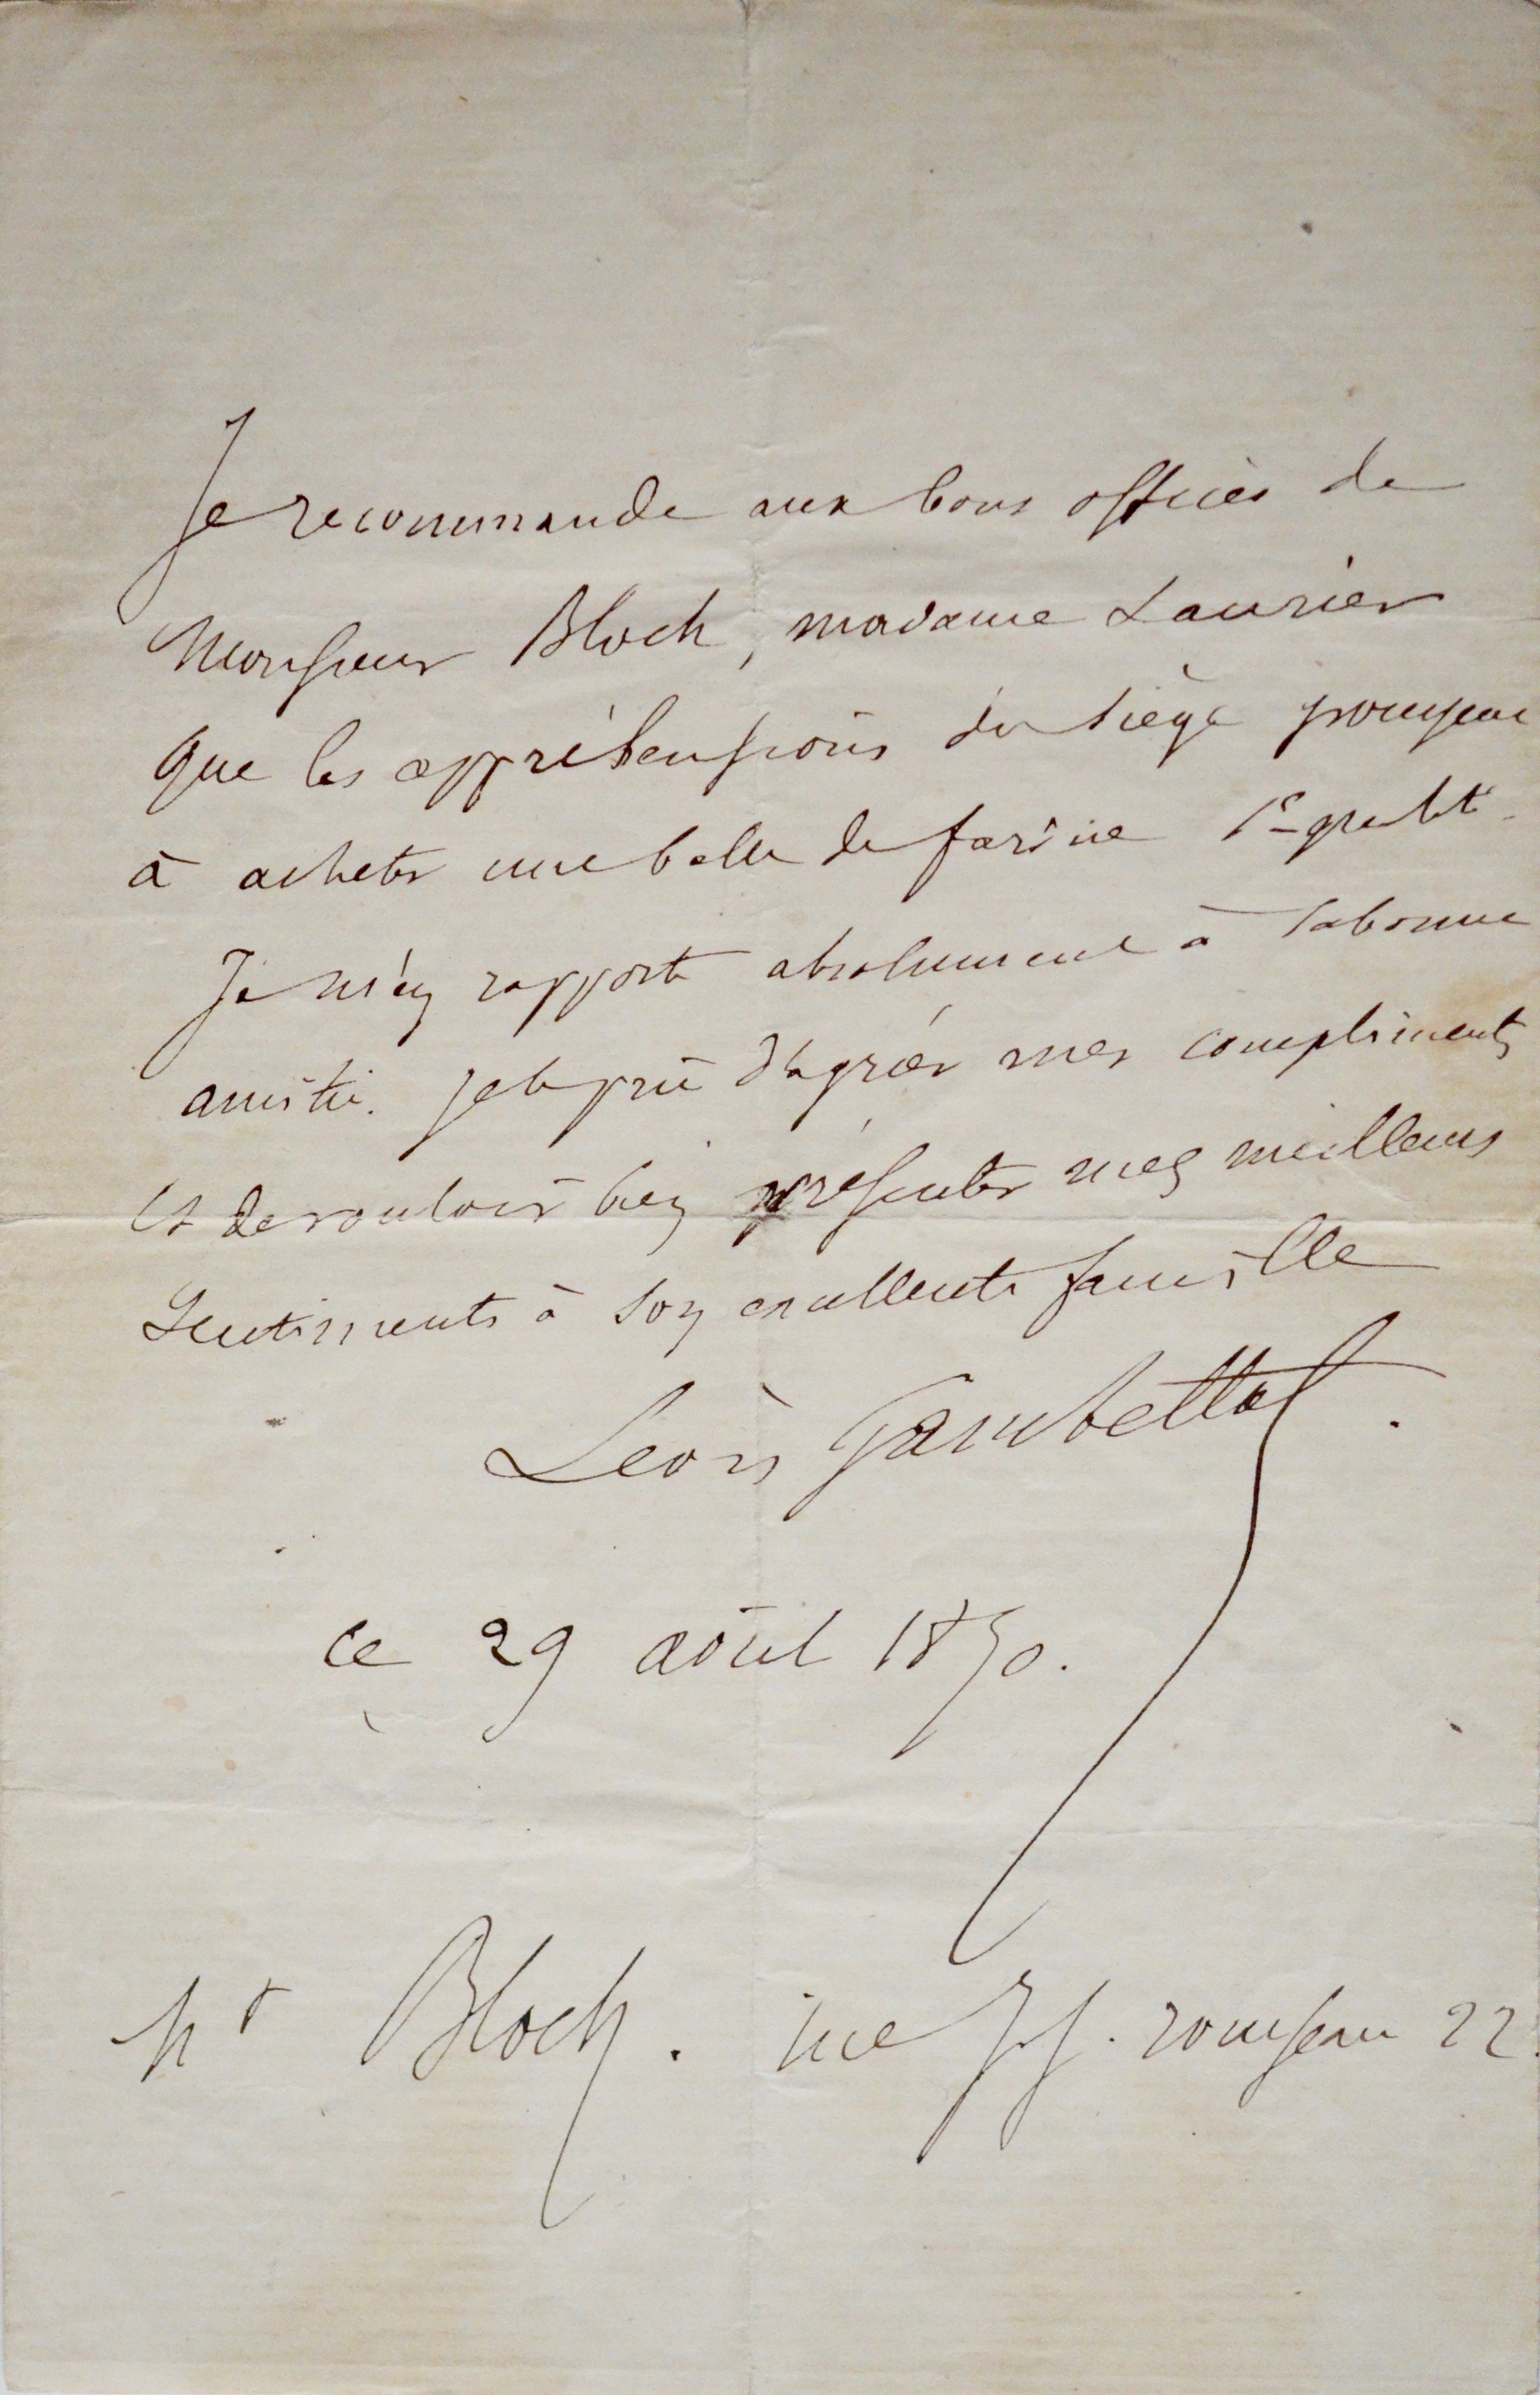 Je recommande aux bons offices de
Monsieur Bloch, madame Laurier
que les appréhensions du siège poussent
à acheter une balle de farine 1e qualité.
Je m'en rapporte absolument à sa bonne
amitié. Je le prie d'agréer mes compliments
et de vouloir bien présenter mes meilleurs
sentiments à son excellente famille
Léon Gambetta.
ce 29 août 1870.
Mr Bloch. rue JJ. rousseau 22.